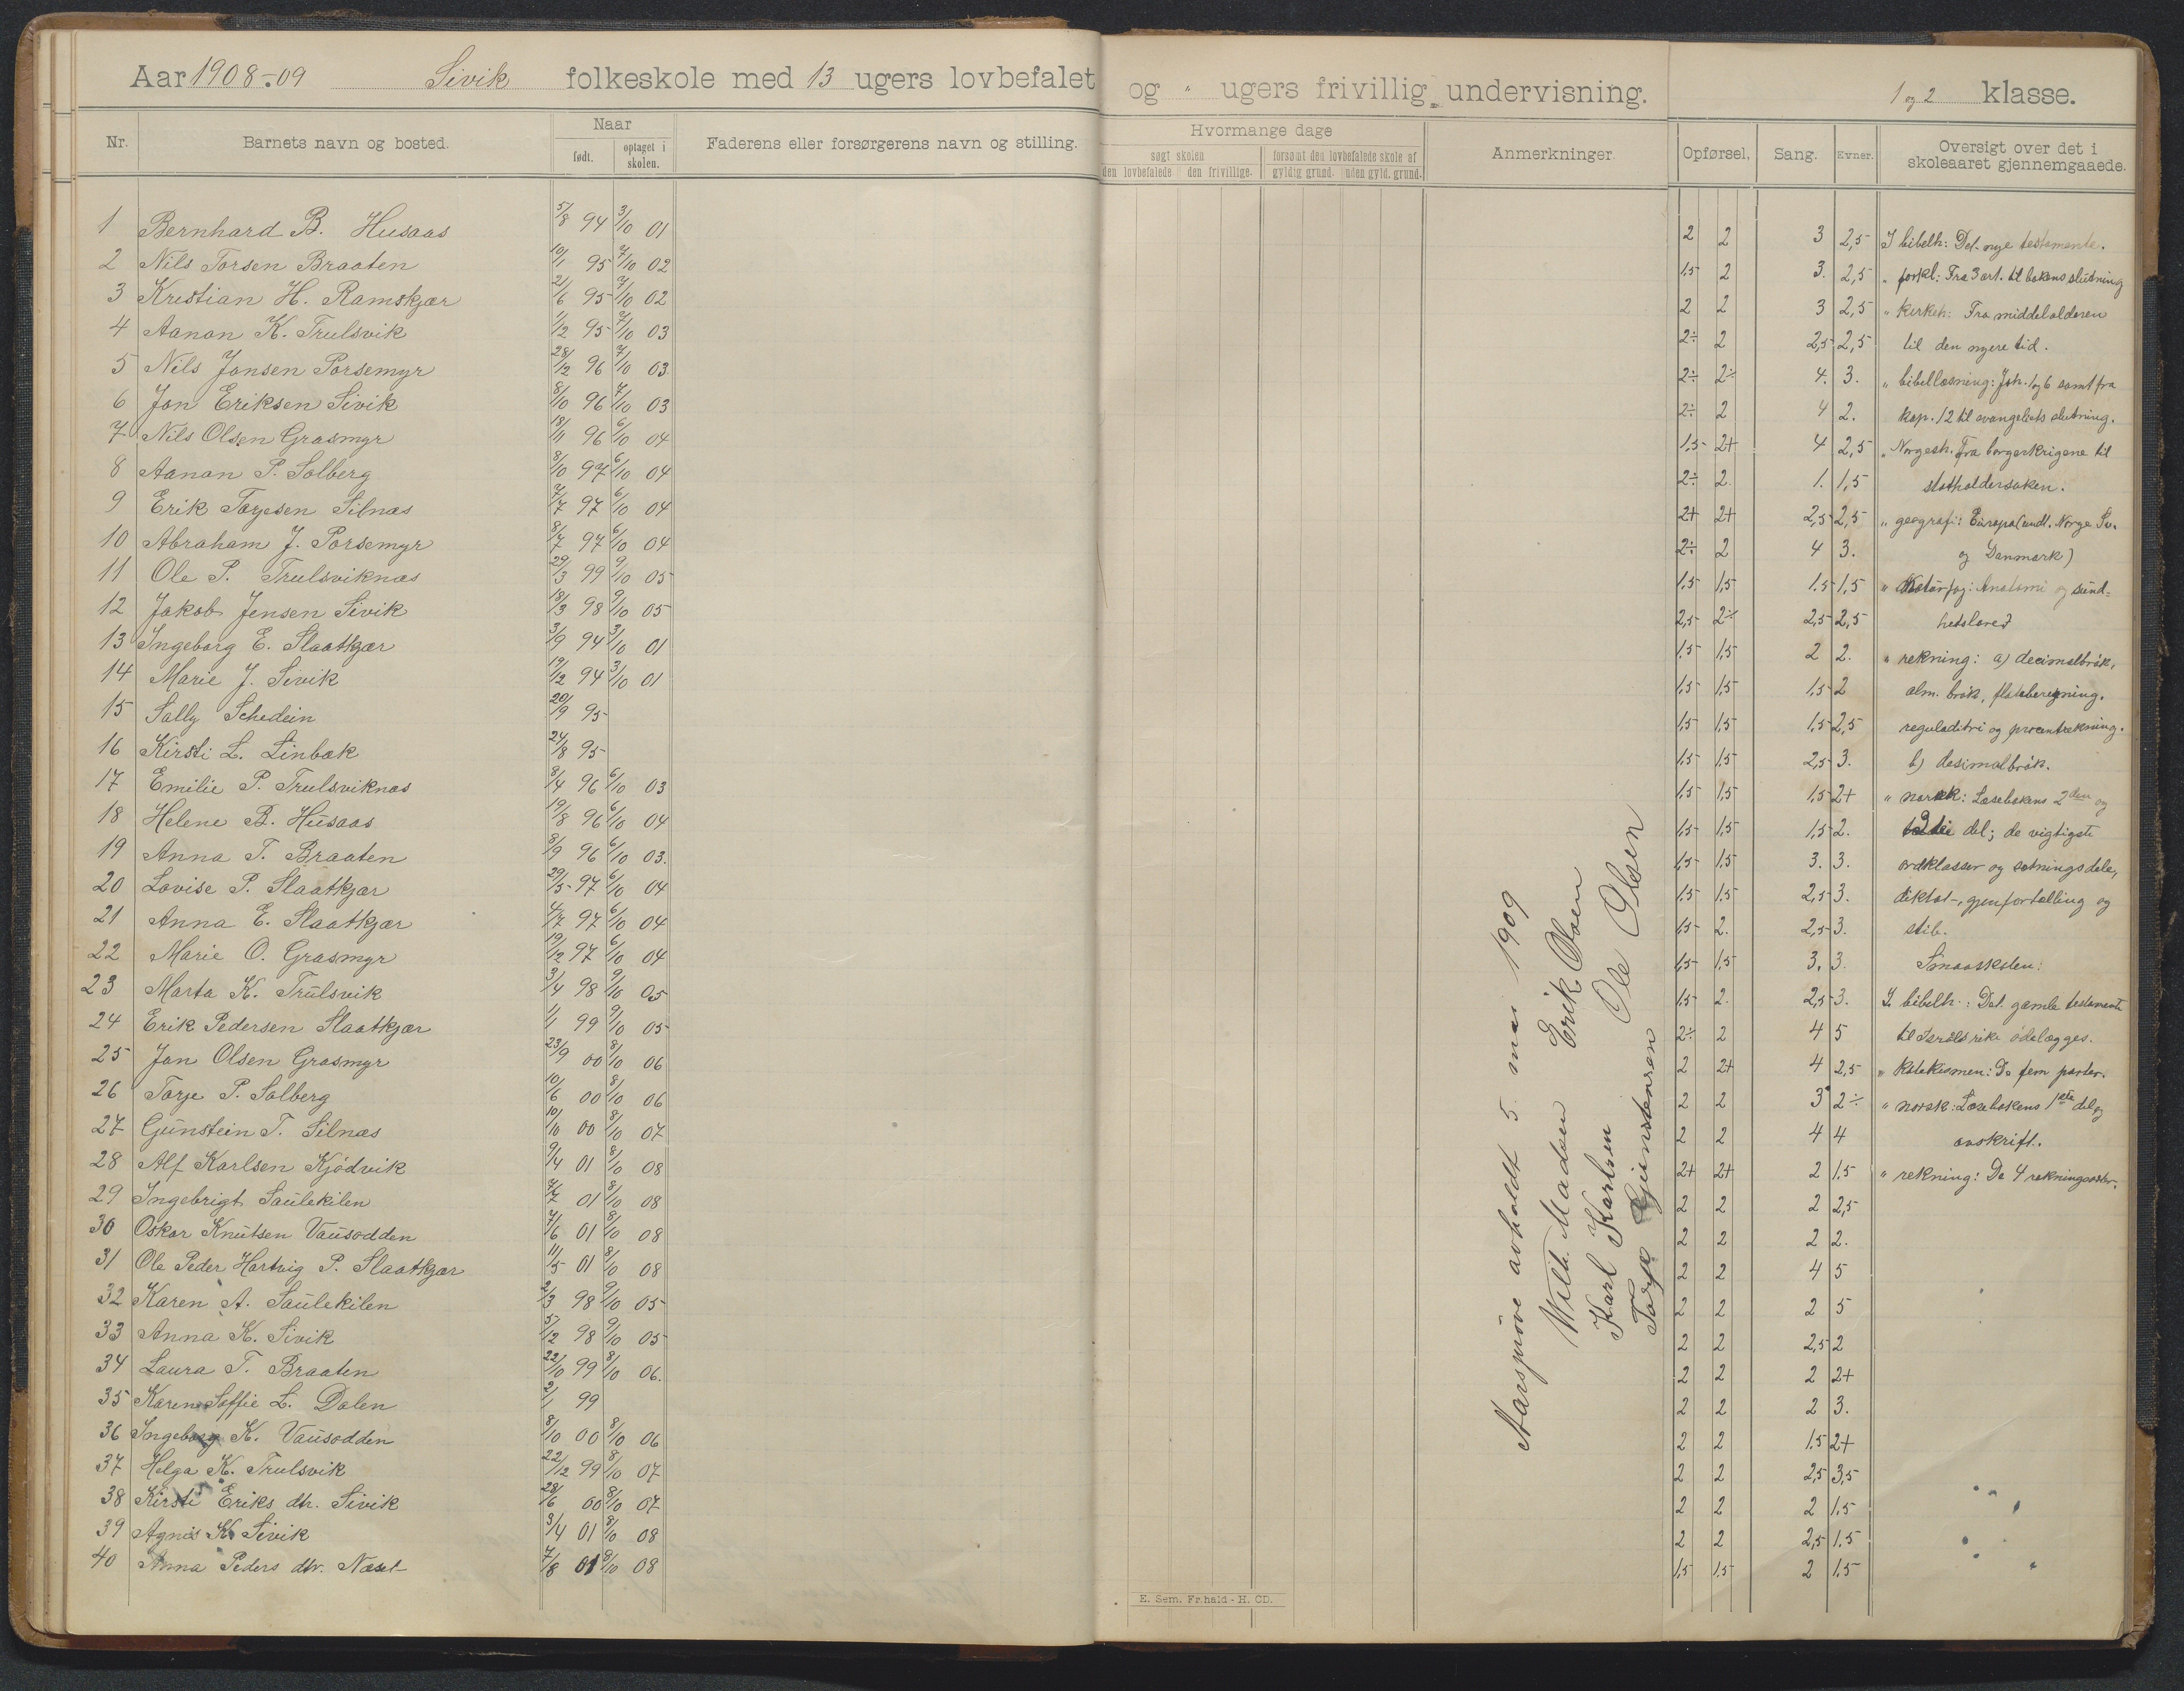 Aar 1908-09 Sivik folkeskole med 13 ugers lovbefalet og " ugers frivillig undervisning. 1 og 2 klasse.
Nr. Barnets navn og bosted. Naar født. optaget i skolen. Faderens eller forsørgerens navn og stilling. Hvormange dage søgt skolen den lovbefalede den frivillige. forsømt den lovbefalede skole af gyldig grund. uden gyld. grund. Anmerkninger. Opførsel. Sang. Evner. Oversigt over det i skoleaaret gjennemgaaede.
1 Bernhard B. Husaas 5/8 94 3/10 01 2 2 3 2,5 I bibelh: Det nye testamente.
2 Nils Torsen Braaten 10/1 95 7/10 02 1,5 2 3. 2,5 " forkl: Fra 3 art. til bokens slutning
3 Kristian H. Ramskjær 21/6 95 7/10 02 2 2 3 2,5 " kirkeh: Fra middelalderen
4 Aanon K. Trulsvik 1/2 95 7/10 03 2÷ 2 2,5 2,5 til den nyere tid.
5 Nils Jensen Porsemyr 28/12 96 7/10 03 2÷ 2÷ 4. 3. " bibellæsning: Joh. 1 og 6 samt fra
6 Jon Eriksen Sivik 8/10 96 7/10 03 2÷ 2 4 2. kap. 12 til evangeliets slutning.
7 Nils Olsen Græsmyr 18/11 96 6/10 04 1,5 2+ 4 2,5 " Norgesh. Fra borgerkrigene til
8 Aanon P. Solberg 8/10 97 6/10 04 2÷ 2. 1. 1,5 statholdersaken.
9 Erik Torjesen Silnæs 7/7 97 6/10 04 2+ 2+ 2,5 2,5 " geografi: Europa (undt. Norge Sv.
10 Abraham J. Porsemyr 8/7 97 6/10 04 2÷ 2 4 3. og Danmark)
11 Ole P. Trulsviknæs 29/3 99 9/10 05 1,5 1,5 1.5 1,5 " Naturfag: Anatomi og sund=
12 Jakob Jensen Sivik 18/3 98 9/10 05 2,5 2÷ 2,5 2,5 hetslære
13 Ingeborg E. Slaatkjær 3/9 94 3/10 01 1,5 1,5 2 2. " rekning: a) decimalbrøk,
14 Marie J. Sivik 19/12 94 3/10 01 1,5 1,5 1,5 2 alm. brøk, flateberegning.
15 Sally Schedein 20/9 95 1,5 1,5 1,5 2,5 reguladitri og procentrekning.
16 Kirsti L. Linbæk 24/8 95 1,5 1,5 2,5 3. b) desimalbrøk.
17 Emilie P. Trulsviknæs 8/4 96 6/10 03 1,5 1,5 1,5 2+ " norsk: Læsebokens 2den og
18 Helene B. Husaas 19/8 96 6/10 04 1,5 1,5 1,5 2. 3die del; de vigtigste
19 Anna T. Braaten 8/9 96 6/10 03. 1,5 1,5 3. 3. ordklasser og sætningsdele,
20 Lovise P. Slaatkjær 29/5 97 6/10 04 1,5 1,5 2,5 3. diktat-, gjenfortælling og
21 Anna E. Slaatkjær 4/7 97 6/10 04 1,5 2. 2,5 3. stil.
22 Marie O. Græsmyr 19/12 97 6/10 04 1,5 1,5 3. 3. Smaaskolen:
23 Marta K. Trulsvik 3/4 98 9/10 05 1,5 2. 2,5 3. I. bibelh.: Det gamle testamente
24 Erik Pedersen Slaatkjær 1/1 99 9/10 05 2÷ 2 4 5 til Israels rike ødelægges.
25 Jon Olsen Græsmyr 23/9 00 8/10 06 2 2+ 4 2,5 " Katekismen: De fem parter.
26 Torje P. Solberg 10/6 00 8/10 06 2 2 3 2÷ " norsk: Læsebokens 1ste del og
27 Gunstein T. Silnæs 10/10 00 8/10 07 2 2 4 4 avskrift.
28 Alf Karlsen Kjødvik 9/4 01 8/10 08 2+ 2+ 2 1,5 " rekning: De 4 rekningsarter.
29 Ingebrigt Saulekilen 7/7 01 8/10 08 2 2 2 2,5
30 Oskar Knutsen Vausodden 7/6 01 8/10 08 2 2 2 2.
31 Ole Peder Hartvig P. Slaatkjær 11/5 01 8/10 08 2 2 4 5
32 Karen A. Saulekilen 2/3 98 9/10 05 2 2 2 5
33 Anna K. Sivik 5/12 98 9/10 05 2 2 2,5 2
34 Laura T. Braaten 22/10 99 8/10 06. 2 2 2 2+
35 Karen Soffie L. Dalen 2/1 99 2 2 2 3.
36 Ingeborg K. Vausodden 8/10 00 8/10 06 2 2 1,5 2+
37 Helga K. Trulsvik 22/12 99 8/10 07 2 2 2,5 3,5
38 Kirsti Eriks dtr. Sivik 28/6 00 8/10 07 2 2 2 1,5
39 Agnes K. Sivik 3/4 01 8/10 08 2 2 2,5 1,5
40 Anna Peders dtr. Næset 7/8 01 8/10 08 1,5 1,5 2 1,5
Aarsprøve avholdt 5. mai 1909
Wilh. Madsen Erik Olsen
Karl Karlsen Ole Olsen
Torje Gjunstensen
E. Sem. Fr.hald - H. CD.